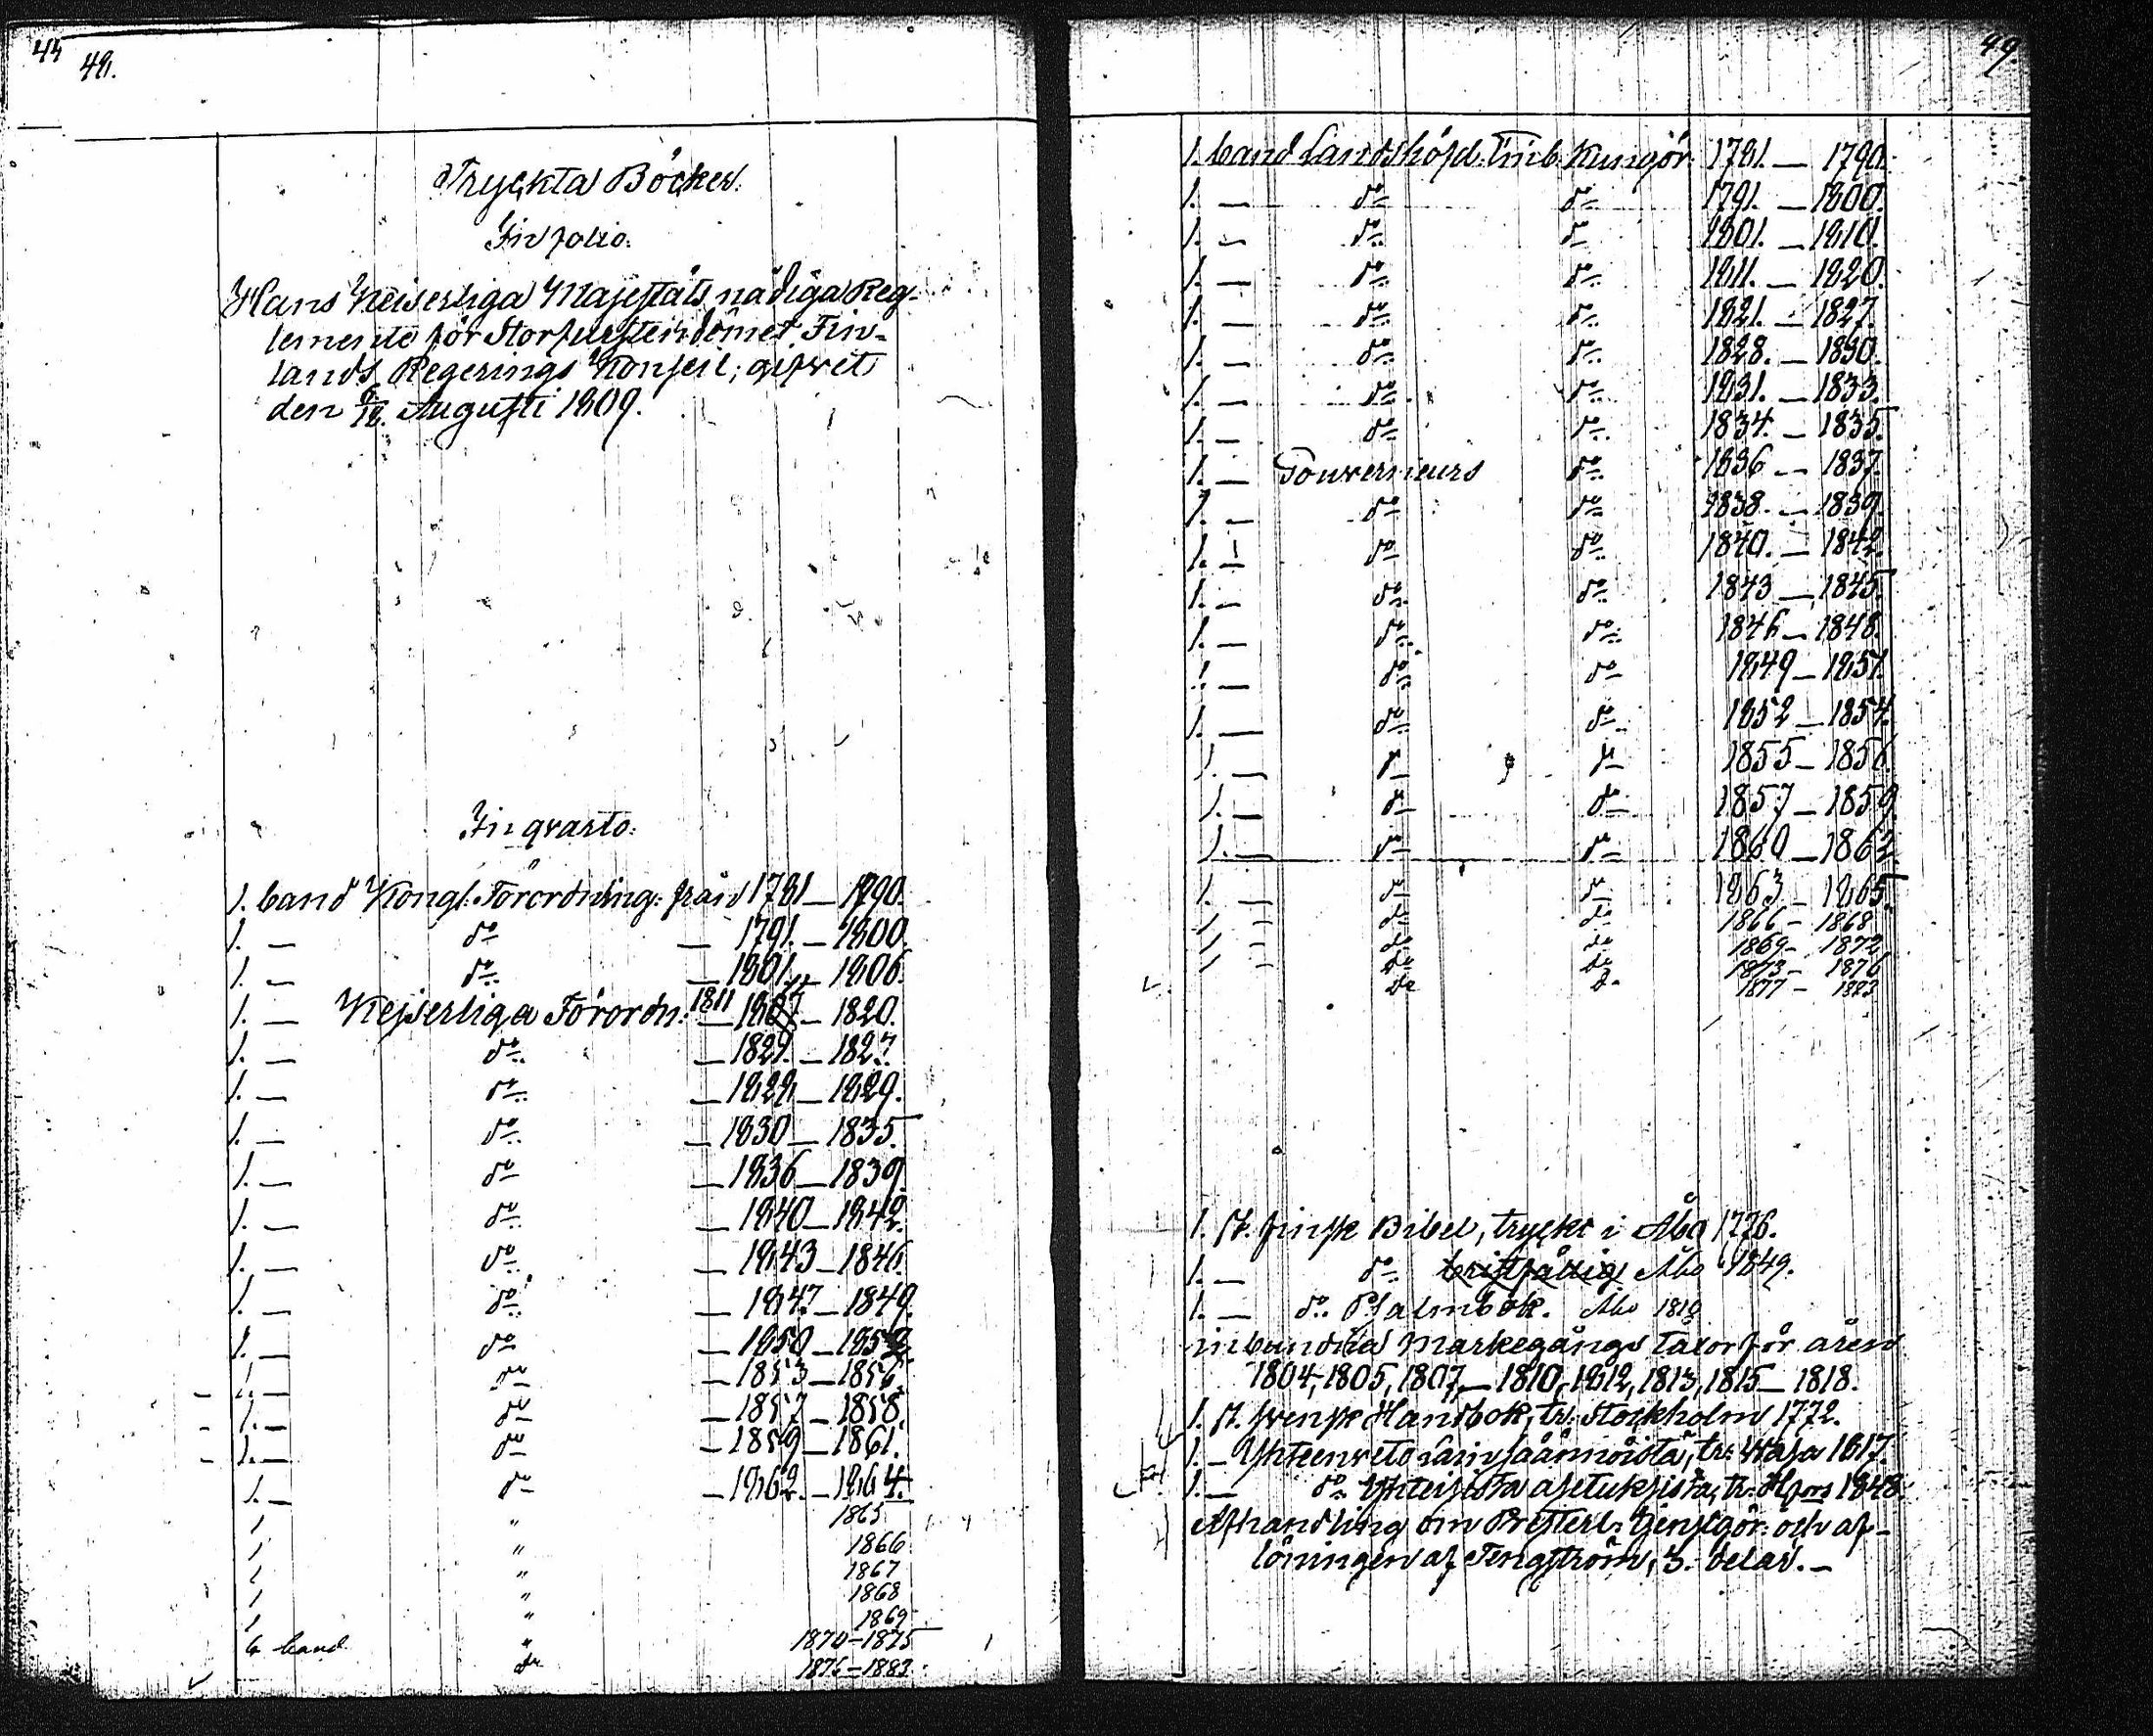 44
48.
Tryckta Böcker.
In folio.
Hans Keiserliga Majestäts nådiga Reg-
lemente för Storfurstendömet Fin-
lands Regerings Konseil; gifvet
den 6/18. Augusti 1809.
In qvarto.
1. band Kongl. Förordning. från 1781 — 1790.
1. — do — 1791. — 1800.
1. — do — 1801. — 1806.
1. — Kejserliga Förordn: 1811 — 1807 — 1820.
1. — do — 1821. — 1827.
1. — do — 1828 — 1829.
1. — do — 1830 — 1835.
1. — do — 1836 — 1839.
1. — do — 1840 — 1842.
1. — do — 1843 — 1846.
1. — do — 1847 — 1849.
1. — do — 1850 — 1852.
1. — do — 1853 — 1856.
1. — do — 1857 — 1858.
1. — do — 1859 — 1861.
1. — do — 1862. — 1864.
1 " 1865
1 " 1866
1 " 1867
1 " 1868
1 " 1869
6 band " 1870 — 1875
do 1876 — 1883.
49.
1. band Landshöfd. Emb. Kungör. 1781. — 1790.
1. — do do 1791. — 1800.
1. — do do 1801. — 1810.
1. — do do 1811. — 1820.
1. — do do 1821. — 1827.
1. — do do 1828. — 1830.
1. — do do 1831. — 1833.
1. — do do 1834. — 1835.
1. — Gouverneurs do 1836 — 1837.
1. — do do 1838. — 1839.
1. — do do 1840. — 1842.
1. — do do 1843 — 1845.
1. — do do 1846 — 1848.
1. — do do 1849 — 1851.
1. — do do 1852 — 1854.
1. — do do 1855 — 1856.
1. — do do 1857 — 1859
1. — do do 1860 — 1862.
1. — do do 1863 — 1865.
1 " do do 1866 — 1868
1 " do do 1869 — 1872
1 " do do 1873 — 1876
do do 1877 — 1883
1. st. finsk Bibel, tryckt i Åbo 1776.
1. — do bristfällig Åbo 1849.
1. — do Psalmbok. Åbo 1819
inbundna Markegångs Taxor för åren
1804, 1805, 1807, — 1810, 1812, 1813, 1815 — 1818.
1. st. svensk Handbok, tr. Stockholm 1772.
1. — Yhteenveto tr. Wasa 1817.
1. — do Yhteisistä asetuksista, tr. Hfors 1848.
Afhandling om Presterl. tjenstgör. och af-
löningen af Tengström, 3. delar. —